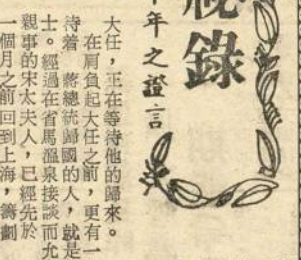 秘錄
年之證言
大任，正在等待他的歸來。
在肩負起大任之前，更有一
待着 蔣總統歸國的人，就是
士。經過在省馬溫泉接談而允
親事的宋太夫人，已經先於
一個月之前回到上海，籌劃